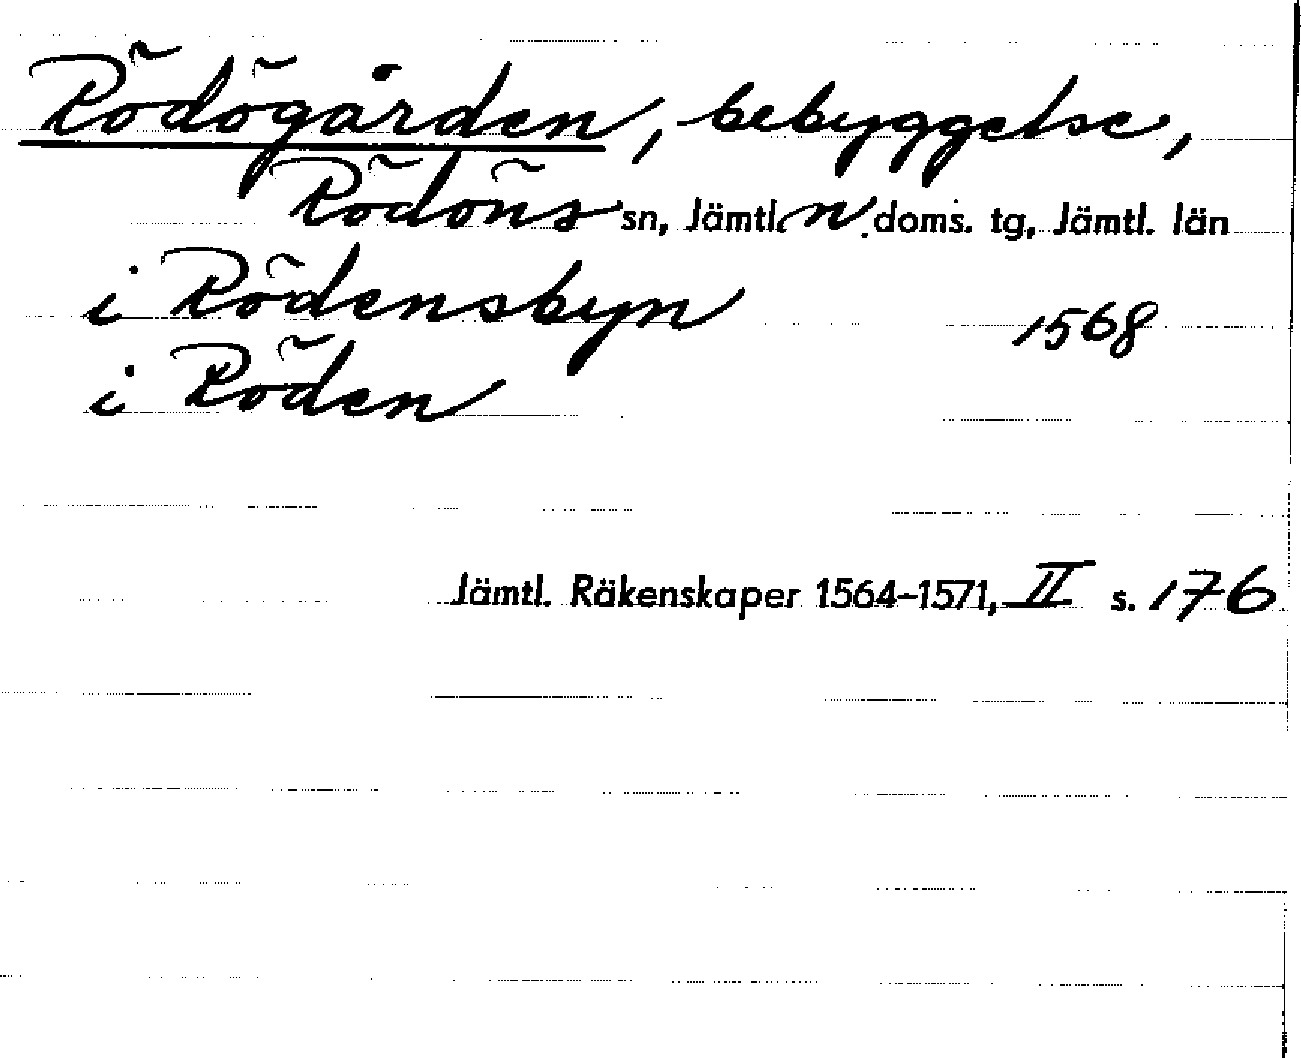 Rödögården, bebyggelse,
Rödöns sn, Jämtl. n. doms. tg, Jämtl. län
i Rödensbyn 1568
i Röden
Jämtl. Räkenskaper 1564–1571, II s. 176